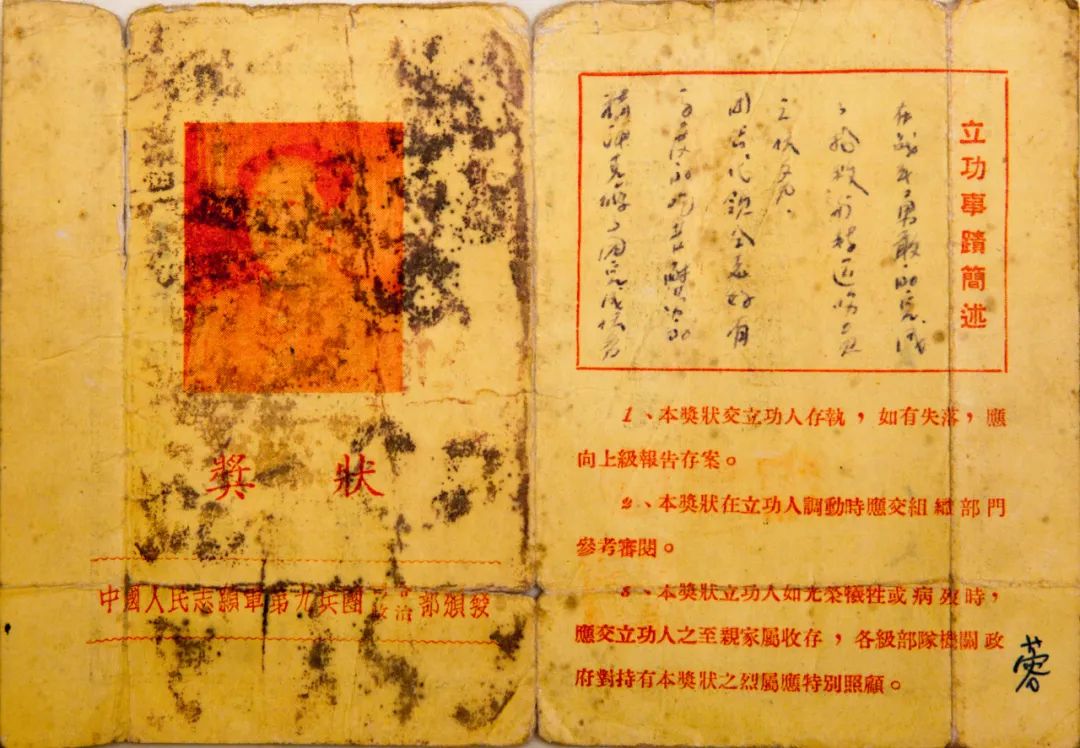 獎狀
中國人民志願軍第九兵團政治部頒發
立功事蹟簡述
在战斗勇敢的完成
了抢救和转运伤员
之任务。
团结
的吃苦耐劳的
精神克服了困
1、本獎狀交立功人存執，如有失落，應
向上級報告存案。
2、本獎狀在立功人調動時應交組織部門
參考審閱。
3、本獎狀立功人如光榮犧牲或病歿時，
應交立功人之至親家屬收存，各級部隊機關政
府對持有本獎狀之烈屬應特別照顧。